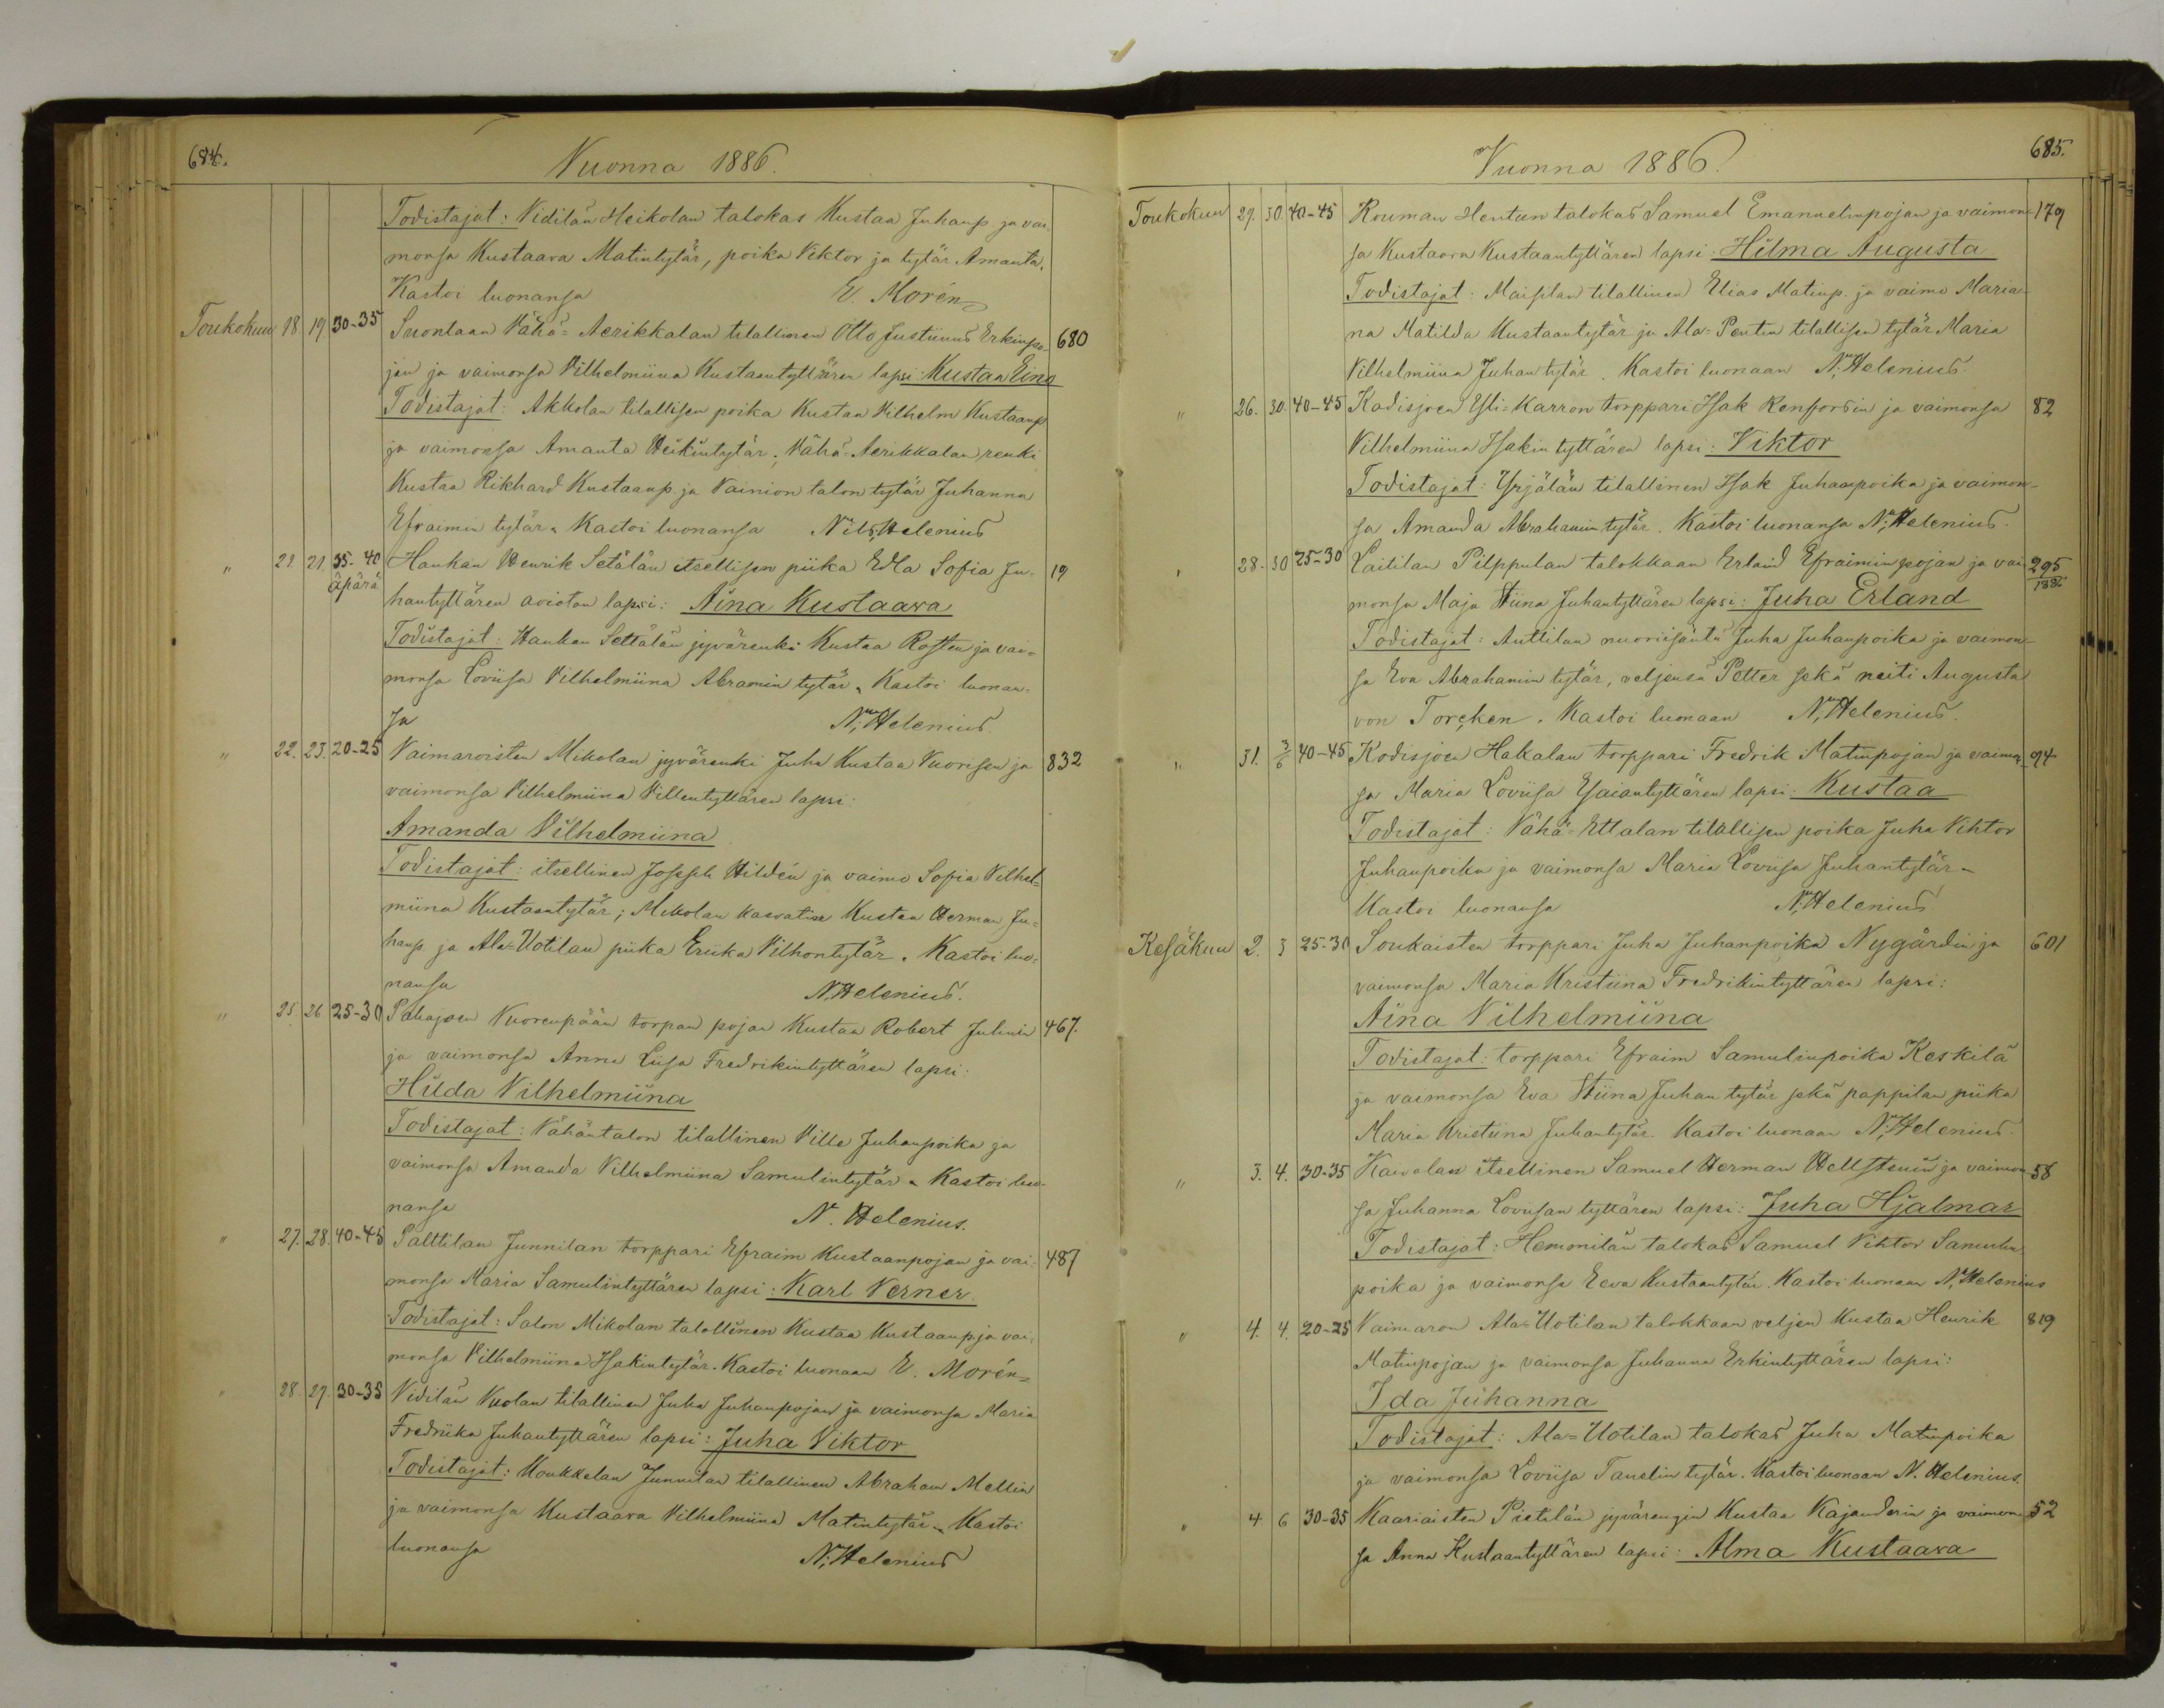 684.
Nuonna 1886.
Todistajat: Nidilän Heikolan talokas Kustaa Juhanp. ja vai-
monsa Kustaava Matintytär, poika Viktor ja tytär Amanta.
Kastoi luonansa E. Morén
Toukokuu 18 19 30-35 Suontaan Vähä-Aerikkalan tilallinen Otto Justiinus Erkinpo- 680
jan ja vaimonsa Vilhelmiina Kustaantyttären lapsi: Kustaa Eino
Todistajat: Akkolan tilallisen poika Kustaa Vilhelm Kustaanp
ja vaimonsa Amanta Heikintytär; Vähä-Aerikkalan renki
Kustaa Rikhard Kustaanp. ja Vainion talon tytär Juhanna
Efraimin tytär. Kastoi luonansa Nils Helenius
" 21 21 35-40 Haukan Henrik Setälän itsellisen piika Edla Sofia Ju- 19
äpärä hantyttären avioton lapsi: Aina Kustaava
Todistajat: Haukan Settälän jyvärenki Kustaa Rosten ja vai-
monsa Loviisa Vilhelmiina Abramin tytär. Kastoi luonan-
sa N. Helenius.
" 22. 23. 20-25 Vaimaroisten Mikolan jyvärenki Juha Kustaa Vuorisen ja 832
vaimonsa Vilhelmiina Villentyttären lapsi:
Amanda Vilhelmiina
Todistajat: itsellinen Joseph Hildén ja vaimo Sofia Vilhel-
miina Kustaantytär; Mikolan kasvatin Kustaa Herman Ju-
hanp ja Ala-Uotilan piika Eriika Vilhontytär. Kastoi luo-
nansa N. Helenius.
" 25. 26 25-30 Pahajoen Vuorenpään torpan pojan Kustaa Robert Julinin 467.
ja vaimonsa Anna Liisa Fredrikintyttären lapsi:
Hilda Vilhelmiina
Todistajat: Vähäntalon tilallinen Ville Juhanpoika ja
vaimonsa Amanda Vilhelmiina Samulintytär. Kastoi luo-
nansa N. Helenius.
" 27. 28. 40-45 Salttilan Junnilan torppari Efraim Kustaanpojan ja vai- 487
monsa Maria Samulintyttären lapsi: Karl Verner.
Todistajat: Salon Mikolan talollinen Kustaa Kustaanp ja vai-
monsa Vilhelmiina Isakintytär. Kastoi luonaan E. Morén
" 28. 29. 30-35 Nidilän Kuolan tilallinen Juha Juhanpojan ja vaimonsa Maria
Fredriika Juhantyttären lapsi: Juha Viktor
Todistajat: Koukkelan Junnilan tilallinen Abraham Mellin
ja vaimonsa Kustaava Vilhelmiina Matintytär. Kastoi
luonansa N. Helenius
Vuonna 1886.
685.
Toukokuu 29. 30. 40-45 Rouman Hentun talokas Samuel Emanuelinpojan ja vaimon- 179
sa Kustaava Kustaantyttären lapsi: Hilma Augusta
Todistajat: tilallinen Elias Matinp. ja vaimo Maria-
na Matilda Kustaantytär ja Ala-Pentin tilallisen tytär Maria
Vilhelmiina Juhan tytär. Kastoi luonaan N. Helenius.
" 26. 30. 40-45 Kodisjoen Yli-Karron torppari Isak Renforsin ja vaimonsa 82
Vilhelmiina Isakin tyttären lapsi: Viktor
Todistajat: Yrjälän tilallinen Isak Juhanpoika ja vaimon-
sa Amanda Abrahamin tytär. Kastoi luonansa N. Helenius.
" 28. 30 25-30 Laitilan Pilppulan talokkaan Erland Efraiminpojan ja vai- 295
monsa Maja Stiina Juhantyttären lapsi: Juha Erland 1886
Todistajat: Anttilan nuoriisäntä Juha Juhanpoika ja vaimon-
sa Eva Abrahamin tytär, veljensä Petter sekä neiti Augusta
von Torcken. Kastoi luonaan N. Helenius.
" 31. 3/6 40-45 Kodisjoen Hakalan torppari Fredrik Matinpojan ja vaimon- 94
sa Maria Loviisa Esaiantyttären lapsi: Kustaa
Todistajat: Vähä-Ettalan tilallisen poika Juha Viktor
Juhanpoika ja vaimonsa Maria Loviisa Juhantytär.
Kastoi luonansa N. Helenius
Kesäkuu 2. 3 25-30 Soukaisten torppari Juha Juhanpoika Nygårdin ja 601
vaimonsa Maria Kristiina Fredrikintyttären lapsi:
Aina Vilhelmiina
Todistajat: torppari Efraim Samulinpoika Keskilä
ja vaimonsa Eva Stiina Juhan tytär sekä pappilan piika
Maria Kristiina Juhantytär. Kastoi luonaan N. Helenius.
" 3. 4. 30-35 Kaivolan itsellinen Samuel Herman Hellstenin ja vaimon- 58
sa Juhanna Loviisan tyttären lapsi: Juha Hjalmar
Todistajat: Hemmilän talokas Samuel Viktor Samulin
poika ja vaimonsa Eeva Kustaantytär. Kastoi luonaan N. Helenius
" 4. 4. 20-25 Vaimaron Ala-Uotilan talokkaan veljen Kustaa Henrik 819
Matinpojan ja vaimonsa Juhanna Erkintyttären lapsi:
Ida Juhanna
Todistajat: Ala-Uotilan talokas Juha Matinpoika
ja vaimonsa Loviisa Tanelin tytär. Kastoi luonaan N. Helenius.
" 4 6 30-35 Kaariaisten Pietilän jyvärengin Kustaa Kajanderin ja vaimon- 52
sa Anna Kustaantyttären lapsi: Alma Kustaava